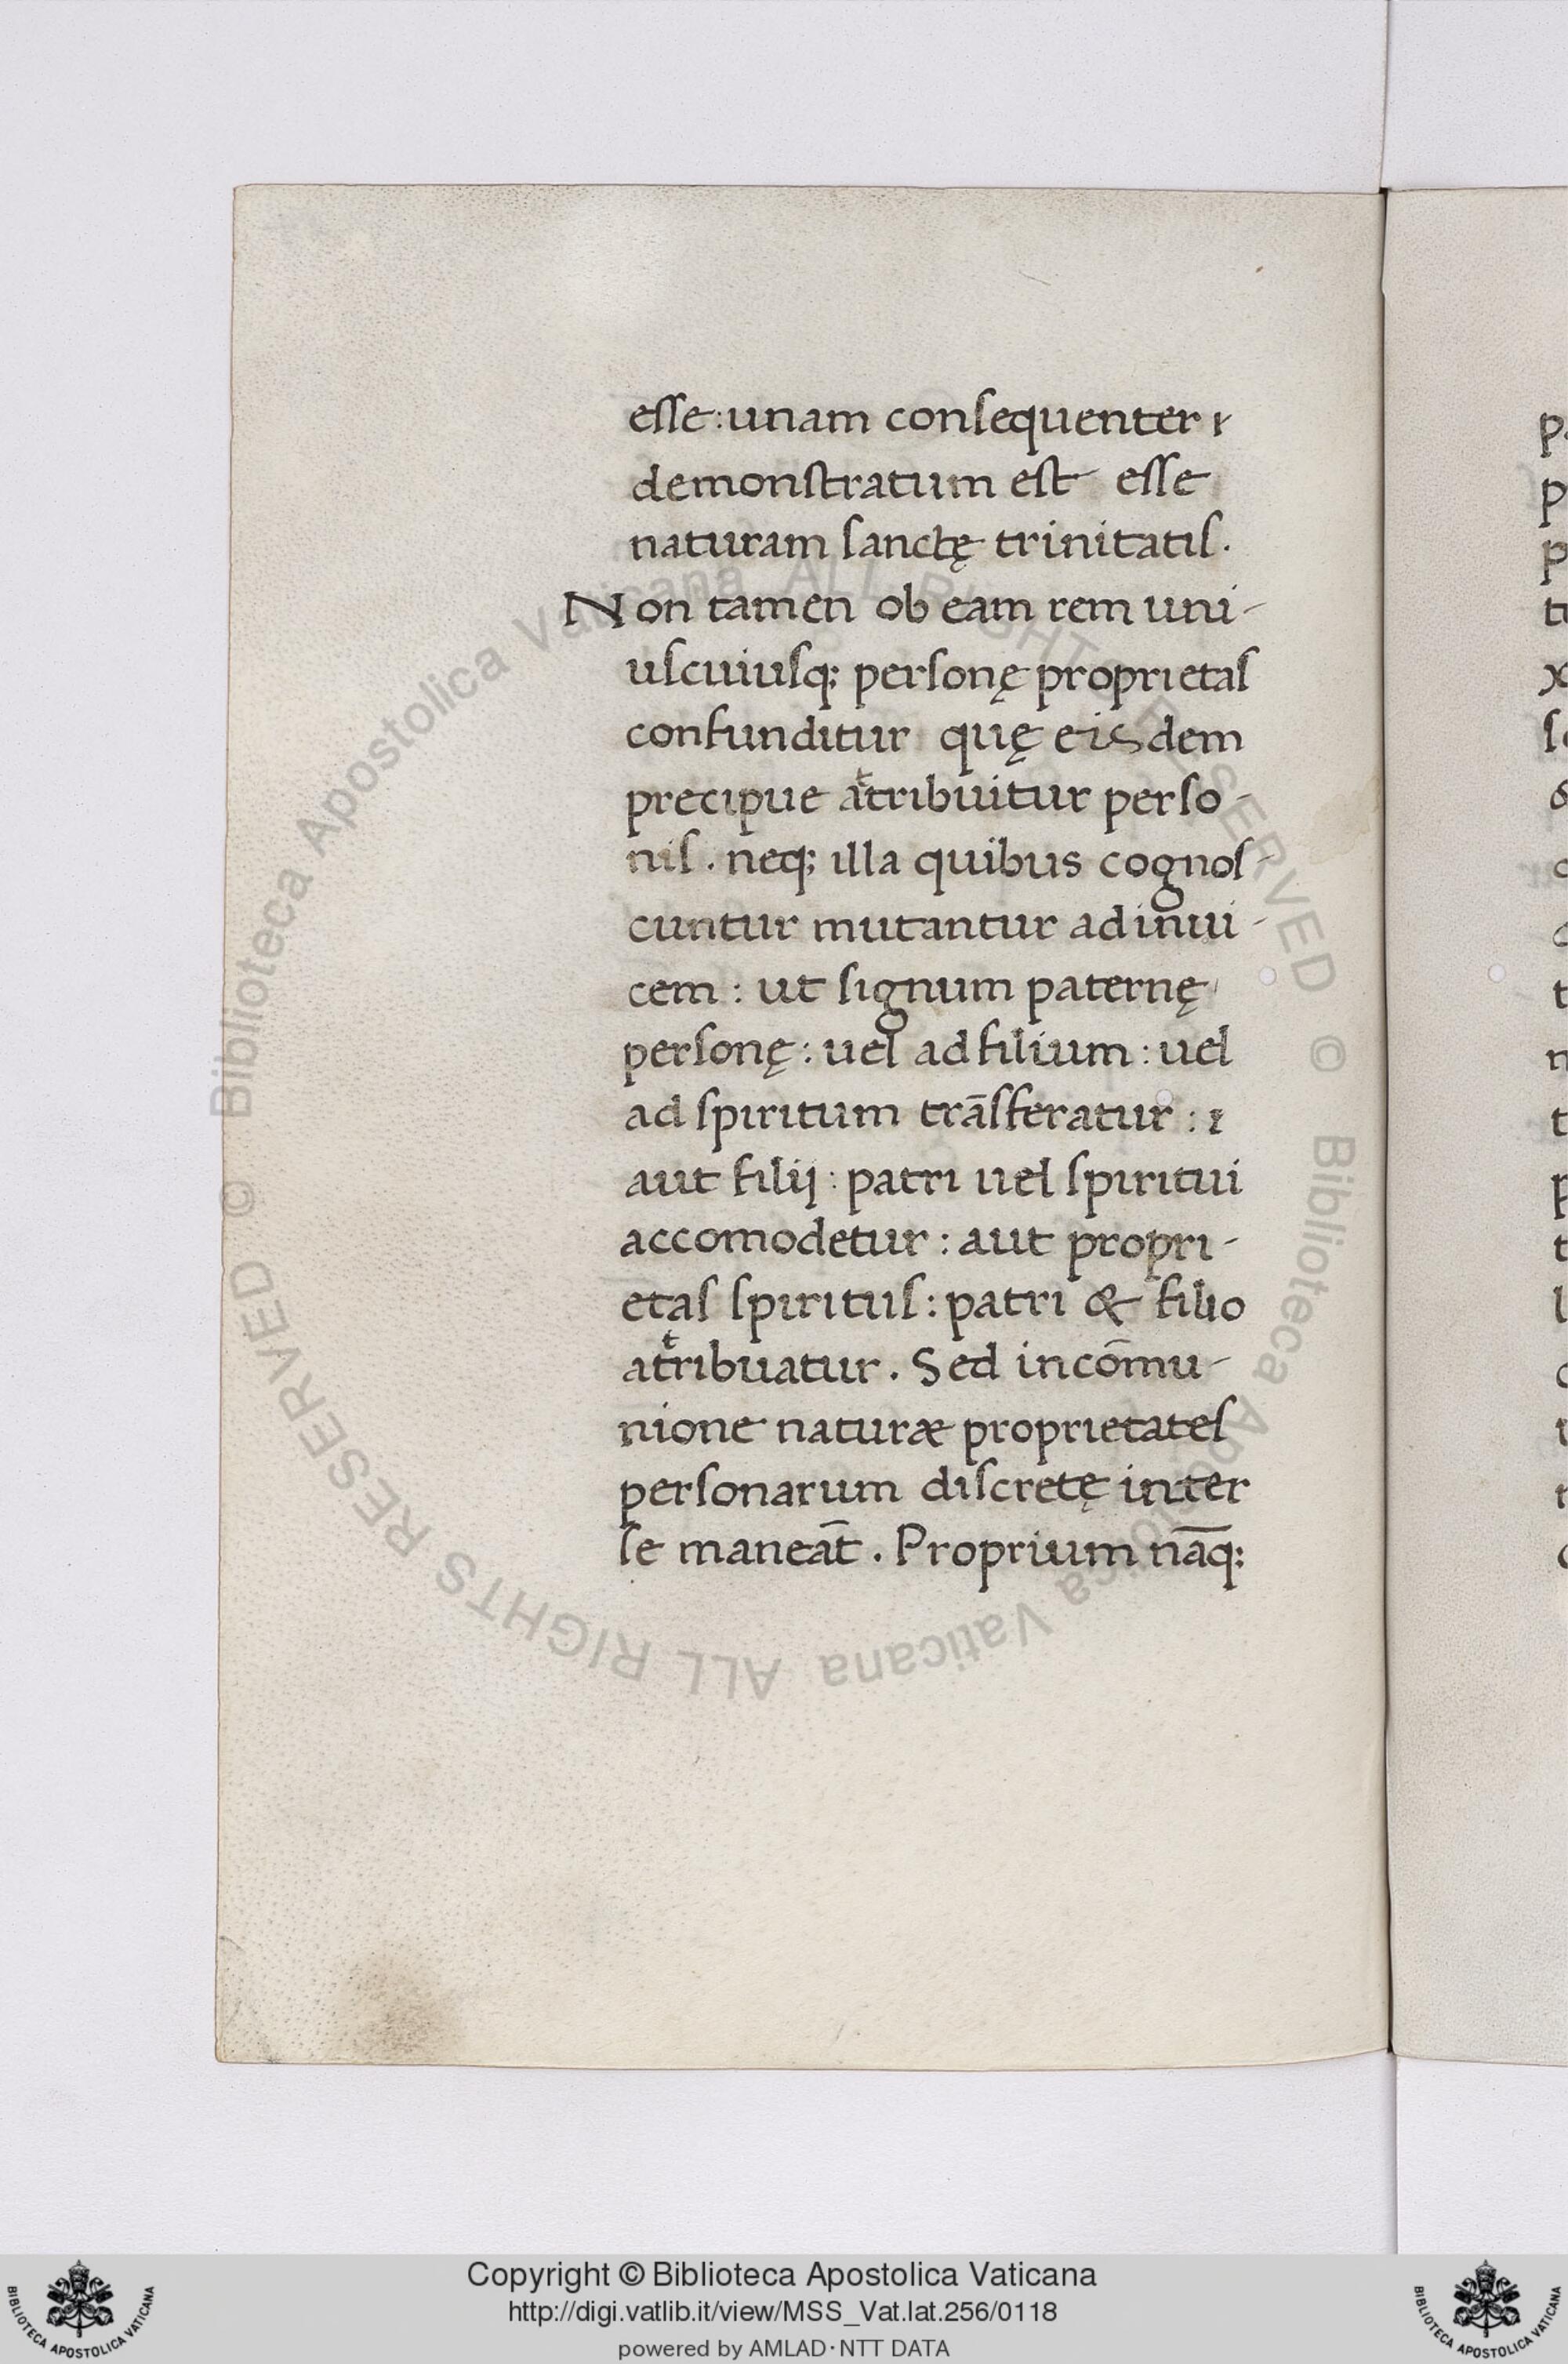 esse: unam consequenter
demonstratum est esse
naturam sanctę trinitatis.
Non tamen ob eam rem uni-
uscuiusq; personę proprietas
confunditur quę eisdem
precipue attribuitur perso-
nis. neq; illa quibus cognos-
cuntur mutantur ad inui-
cem: ut signum paternę
personę: uel ad filium: uel
ad spiritum trāsferatur:
aut filij: patri uel spiritui
accomodetur: aut propri-
etas spiritus: patri & filio
attribuatur. Sed in cōmu-
nione naturæ proprietates
personarum discretę inter
se maneāt. Proprium nāq:
© Biblioteca Apostolica Vaticana ALL RIGHTS RESERVED © Biblioteca Apostolica Vaticana ALL RIGHTS RESERVED
Copyright © Biblioteca Apostolica Vaticana
http://digi.vatlib.it/view/MSS_Vat.lat.256/0118
powered by AMLAD·NTT DATA
BIBLIOTECA APOSTOLICA VATICANA
BIBLIOTECA APOSTOLICA VATICANA